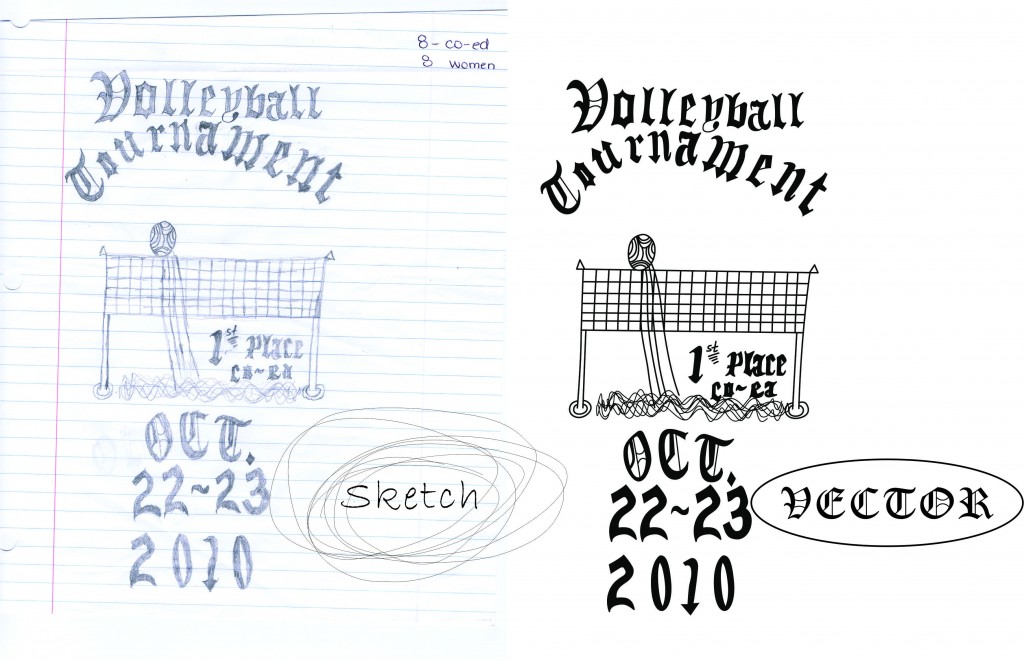 8 - co-ed
8 women
Volleyball
Tournament
1st Place
co~ed
OCT.
22~23
2010
Sketch
Volleyball
Tournament
1st Place
co~ed
OCT.
22~23
2010
VECTOR